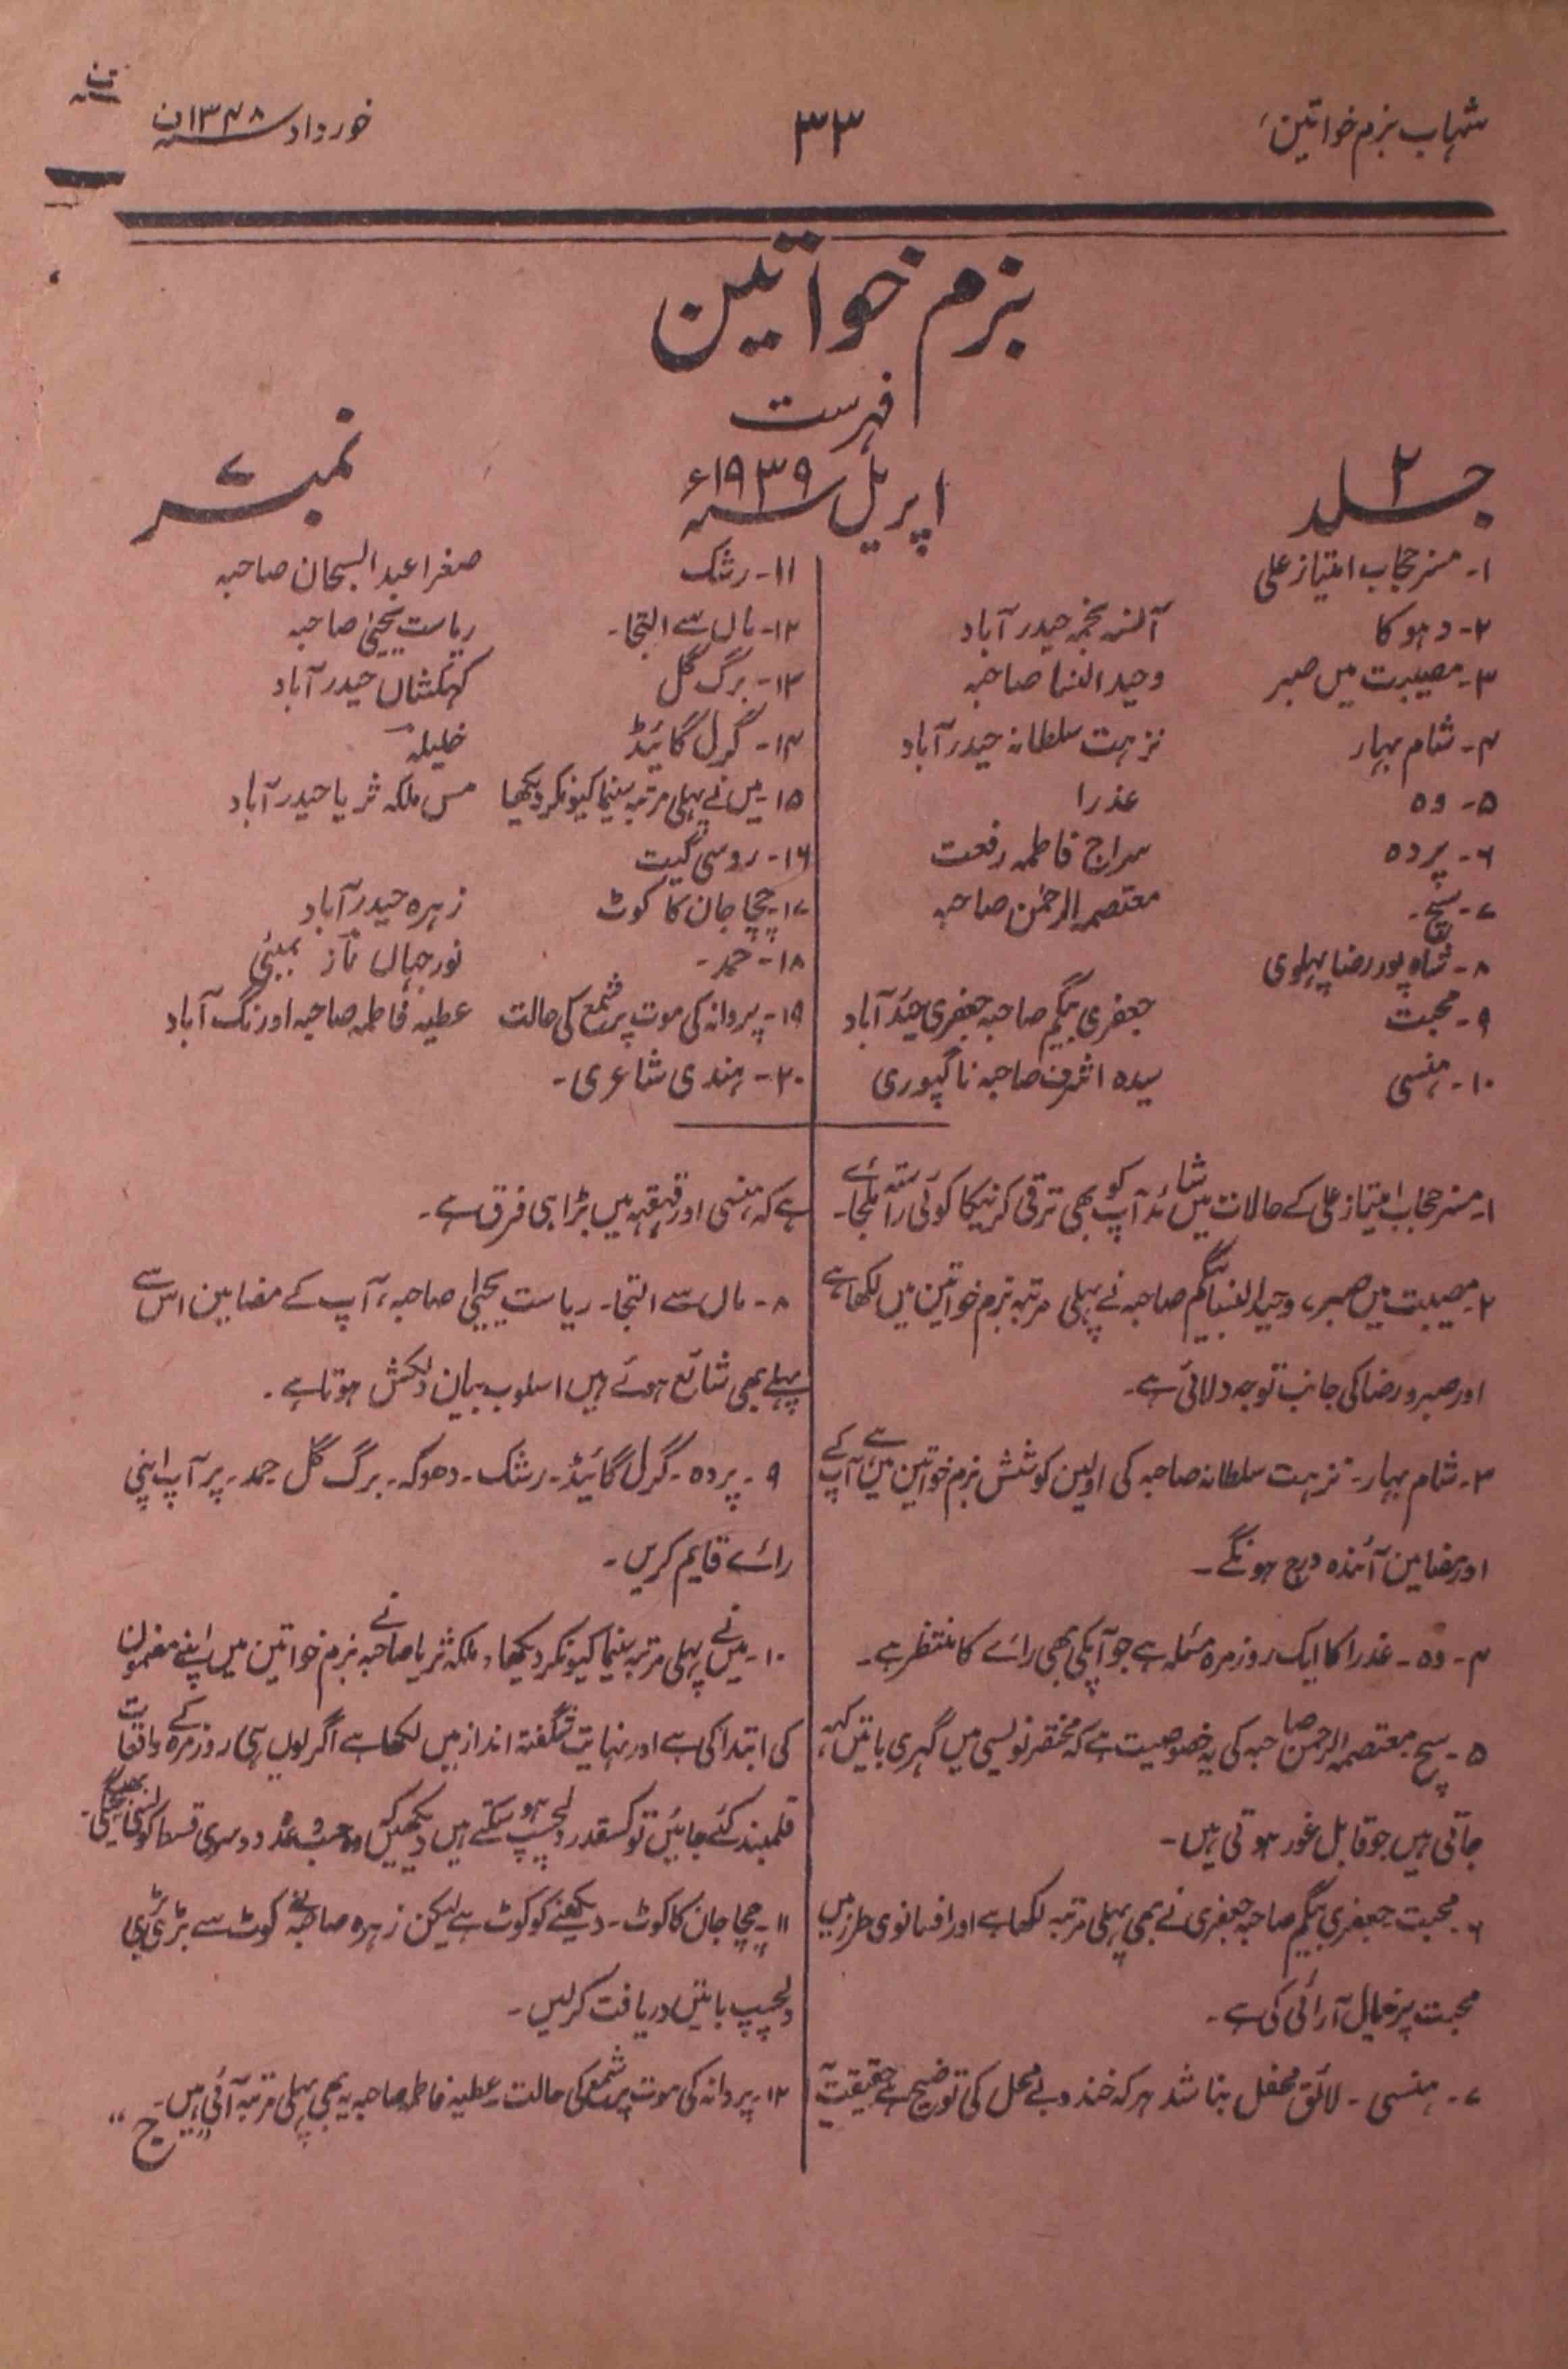 شہاب بزم خواتین
۳۳
خورداد سنہ ۱۳۴۸ ف
بزم خواتین
فہرست
جلد ۲
اپریل سنہ ۱۹۳۹ء
نمبر ۷
۱۔ مسز حجاب امتیاز علی
۲۔ دہوکا آنسہ نجمہ حیدرآباد
۳۔ مصیبت میں صبر وحید النسا صاحبہ
۴۔ شام بہار نزہت سلطانہ حیدرآباد
۵۔ وہ عذرا
۶۔ پردہ سراج فاطمہ رفعت
۷۔ سچ۔ معتصمہ الرحمٰن صاحبہ
۸۔ شاہ پور رضا پہلوی
۹۔ محبت جعفری بیگم صاحبہ جعفری حیدرآباد
۱۰۔ ہنسی سیدہ اشرف صاحبہ ناگپوری
۱۱۔ رشک صغرا عبدالسبحان صاحبہ
۱۲۔ ماں سے التجا۔ ریاست یحییٰ صاحبہ
۱۳۔ برگ گل کہکشاں حیدرآباد
۱۴۔ گرل گائیڈ خلیلہ
۱۵۔ میں نے پہلی مرتبہ سینما کیونکر دیکھا مس ملکہ ثریا حیدرآباد
۱۶۔ روسی گیت
۱۷۔ چچا جان کا کوٹ زہرہ حیدرآباد
۱۸۔ حمد۔ نورجہاں ناز بمبئی
۱۹۔ پروانہ کی موت پر شمع کی حالت عطیہ فاطمہ صاحبہ اورنگ آباد
۲۰۔ ہندی شاعری۔
۱۔ مسز حجاب امتیاز علی کے حالات میں شائد آپ کو بھی ترقی کرنیکا کوئی راستہ ملجائے۔
۲۔ مصیبت میں صبر، وحید النسا بیگم صاحبہ نے پہلی مرتبہ بزم خواتین میں لکھا ہے
اور صبر و رضا کی جانب توجہ دلائی ہے۔
۳۔ شام بہار۔ نزہت سلطانہ صاحبہ کی اولین کوشش بزم خواتین میں ہے آپ کے
اور مضامین آئندہ درج ہونگے۔
۴۔ وہ۔ عذرا کا ایک روزمرہ مسئلہ ہے جو آپکی بھی رائے کا منتظر ہے۔
۵۔ سچ معتصمہ الرحمن صاحبہ کی یہ خصوصیت ہے کہ مختصر نویسی میں گہری باتیں کہہ
جاتی ہیں جو قابل غور ہوتی ہیں۔
۶۔ محبت جعفری بیگم صاحبہ جعفری نے بھی پہلی مرتبہ لکھا ہے اور افسانوی طرز میں
محبت پر خیال آرائی کی ہے۔
۷۔ ہنسی۔ لائق محفل بنا شد ہر کہ خندد بے محل کی توضیح ہے حقیقت
ہے کہ ہنسی اور قہقہہ میں بڑا ہی فرق ہے۔
۸۔ ماں سے التجا۔ ریاست یحییٰ صاحبہ، آپ کے مضامین اس سے
پہلے بھی شائع ہوئے ہیں اسلوب بیان دلکش ہوتا ہے۔
۹۔ پردہ۔ گرل گائیڈ۔ رشک۔ دھوکہ۔ برگ گل۔ حمد۔ پر آپ اپنی
رائے قایم کریں۔
۱۰۔ میں نے پہلی مرتبہ سینما کیونکر دیکھا، ملکہ ثریا صاحبہ نے بزم خواتین میں اپنے مضمون
کی ابتدا کی ہے اور نہایت شگفتہ انداز میں لکھا ہے اگر یوں ہی روزمرہ کے واقعات
قلمبند کئے جائیں تو کسقدر دلچسپ ہو سکتے ہیں دیکھیں وہ دوسری قسط کو
۱۱۔ چچا جان کا کوٹ۔ دیکھنے کو کوٹ ہے لیکن زہرہ صاحبہ نے کوٹ سے بڑی بڑی
دلچسپ باتیں دریافت کرلیں۔
۱۲۔ پروانہ کی موت پر شمع کی حالت۔ عطیہ فاطمہ صاحبہ یہ بھی پہلی مرتبہ آئی ہیں۔
ج